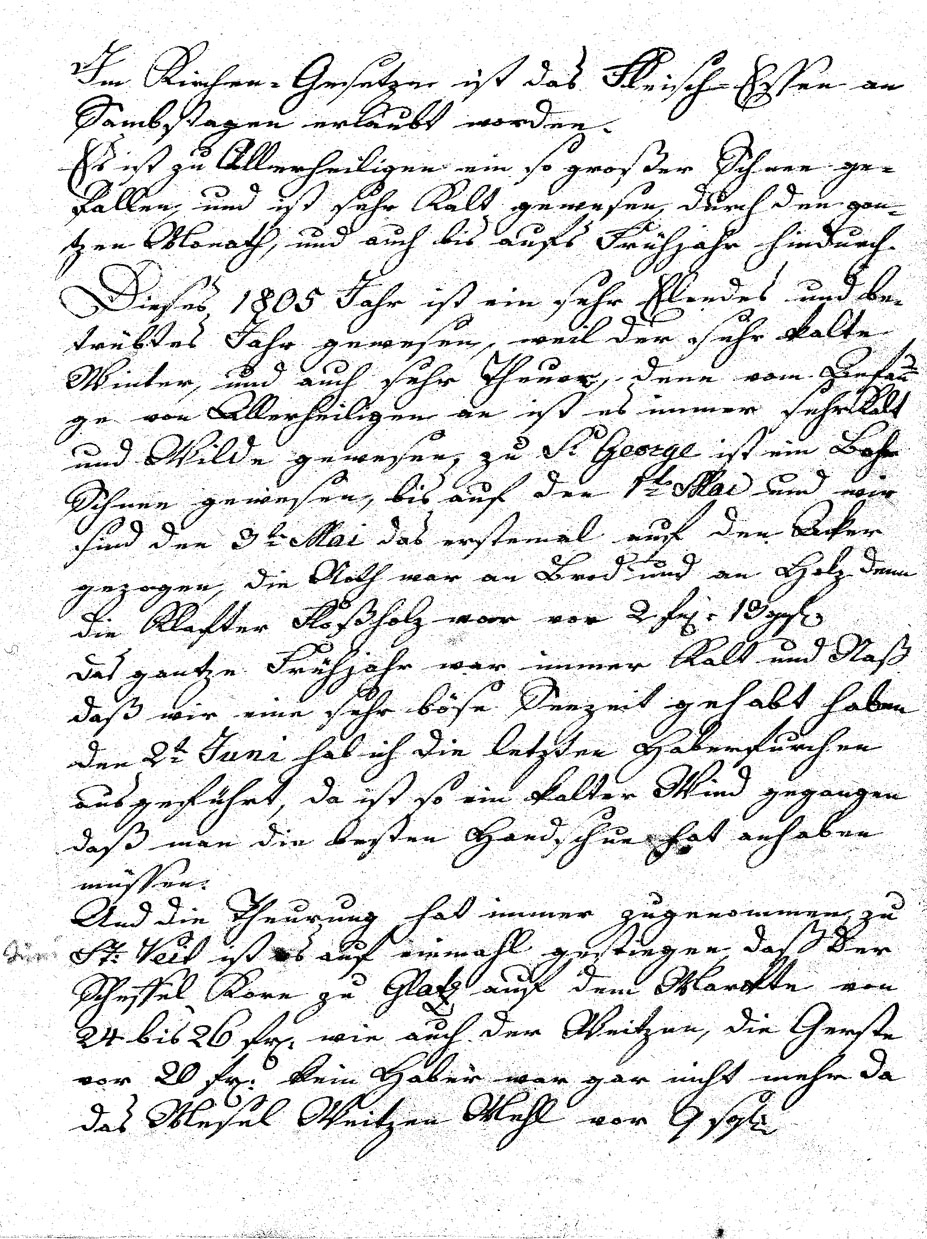 Im Kirchen-Gesetze ist das Fleisch-Essen an
Sambstagen erlaubt worden.
Es ist zu Allerheiligen ein so großer Schnee ge=
fallen, und ist sehr Kalt gewesen, durch den gan=
tzen Monath, und auch bis aufs Frühjahr hindurch.
Dieses 1805 Jahr ist ein sehr Elendes und be=
trübtes Jahr gewesen, weil der sehr kalte
Winter, und auch sehr Theuer, denn vom Anfan=
ge von Allerheiligen an ist es immer sehr Kalt
und Wilde gewesen, zu St George ist ein
Schnee gewesen, bis auf den 1te Mai und wir
sind den 3te Mai das erstemal auf den Acker
gezogen, die Noth war an Brod und an Holz denn
die Klafter Floßholz war vor 2
das gantze Frühjahr war immer Kalt und Naß
daß wir eine sehr böse Seezeit gehabt haben
den 2t Juni hab ich die letzten Haberfurchen
ausgeführt, da ist so ein kalter Wind gegangen
daß man die besten Handschue hat anhaben
müssen.
Und die Theurung hat immer zugenommen, zu
St: Veit ist es auf einmahl gestiegen, daß der
Scheffel Korn zu Glatz auf dem Markte von
24 bis 26 fr: wie auch der Weitzen, die Gerste
vor 20 fr: kein Haber war gar nicht mehr da
das Mesel Weitzen Mehl vor 9 sgl: